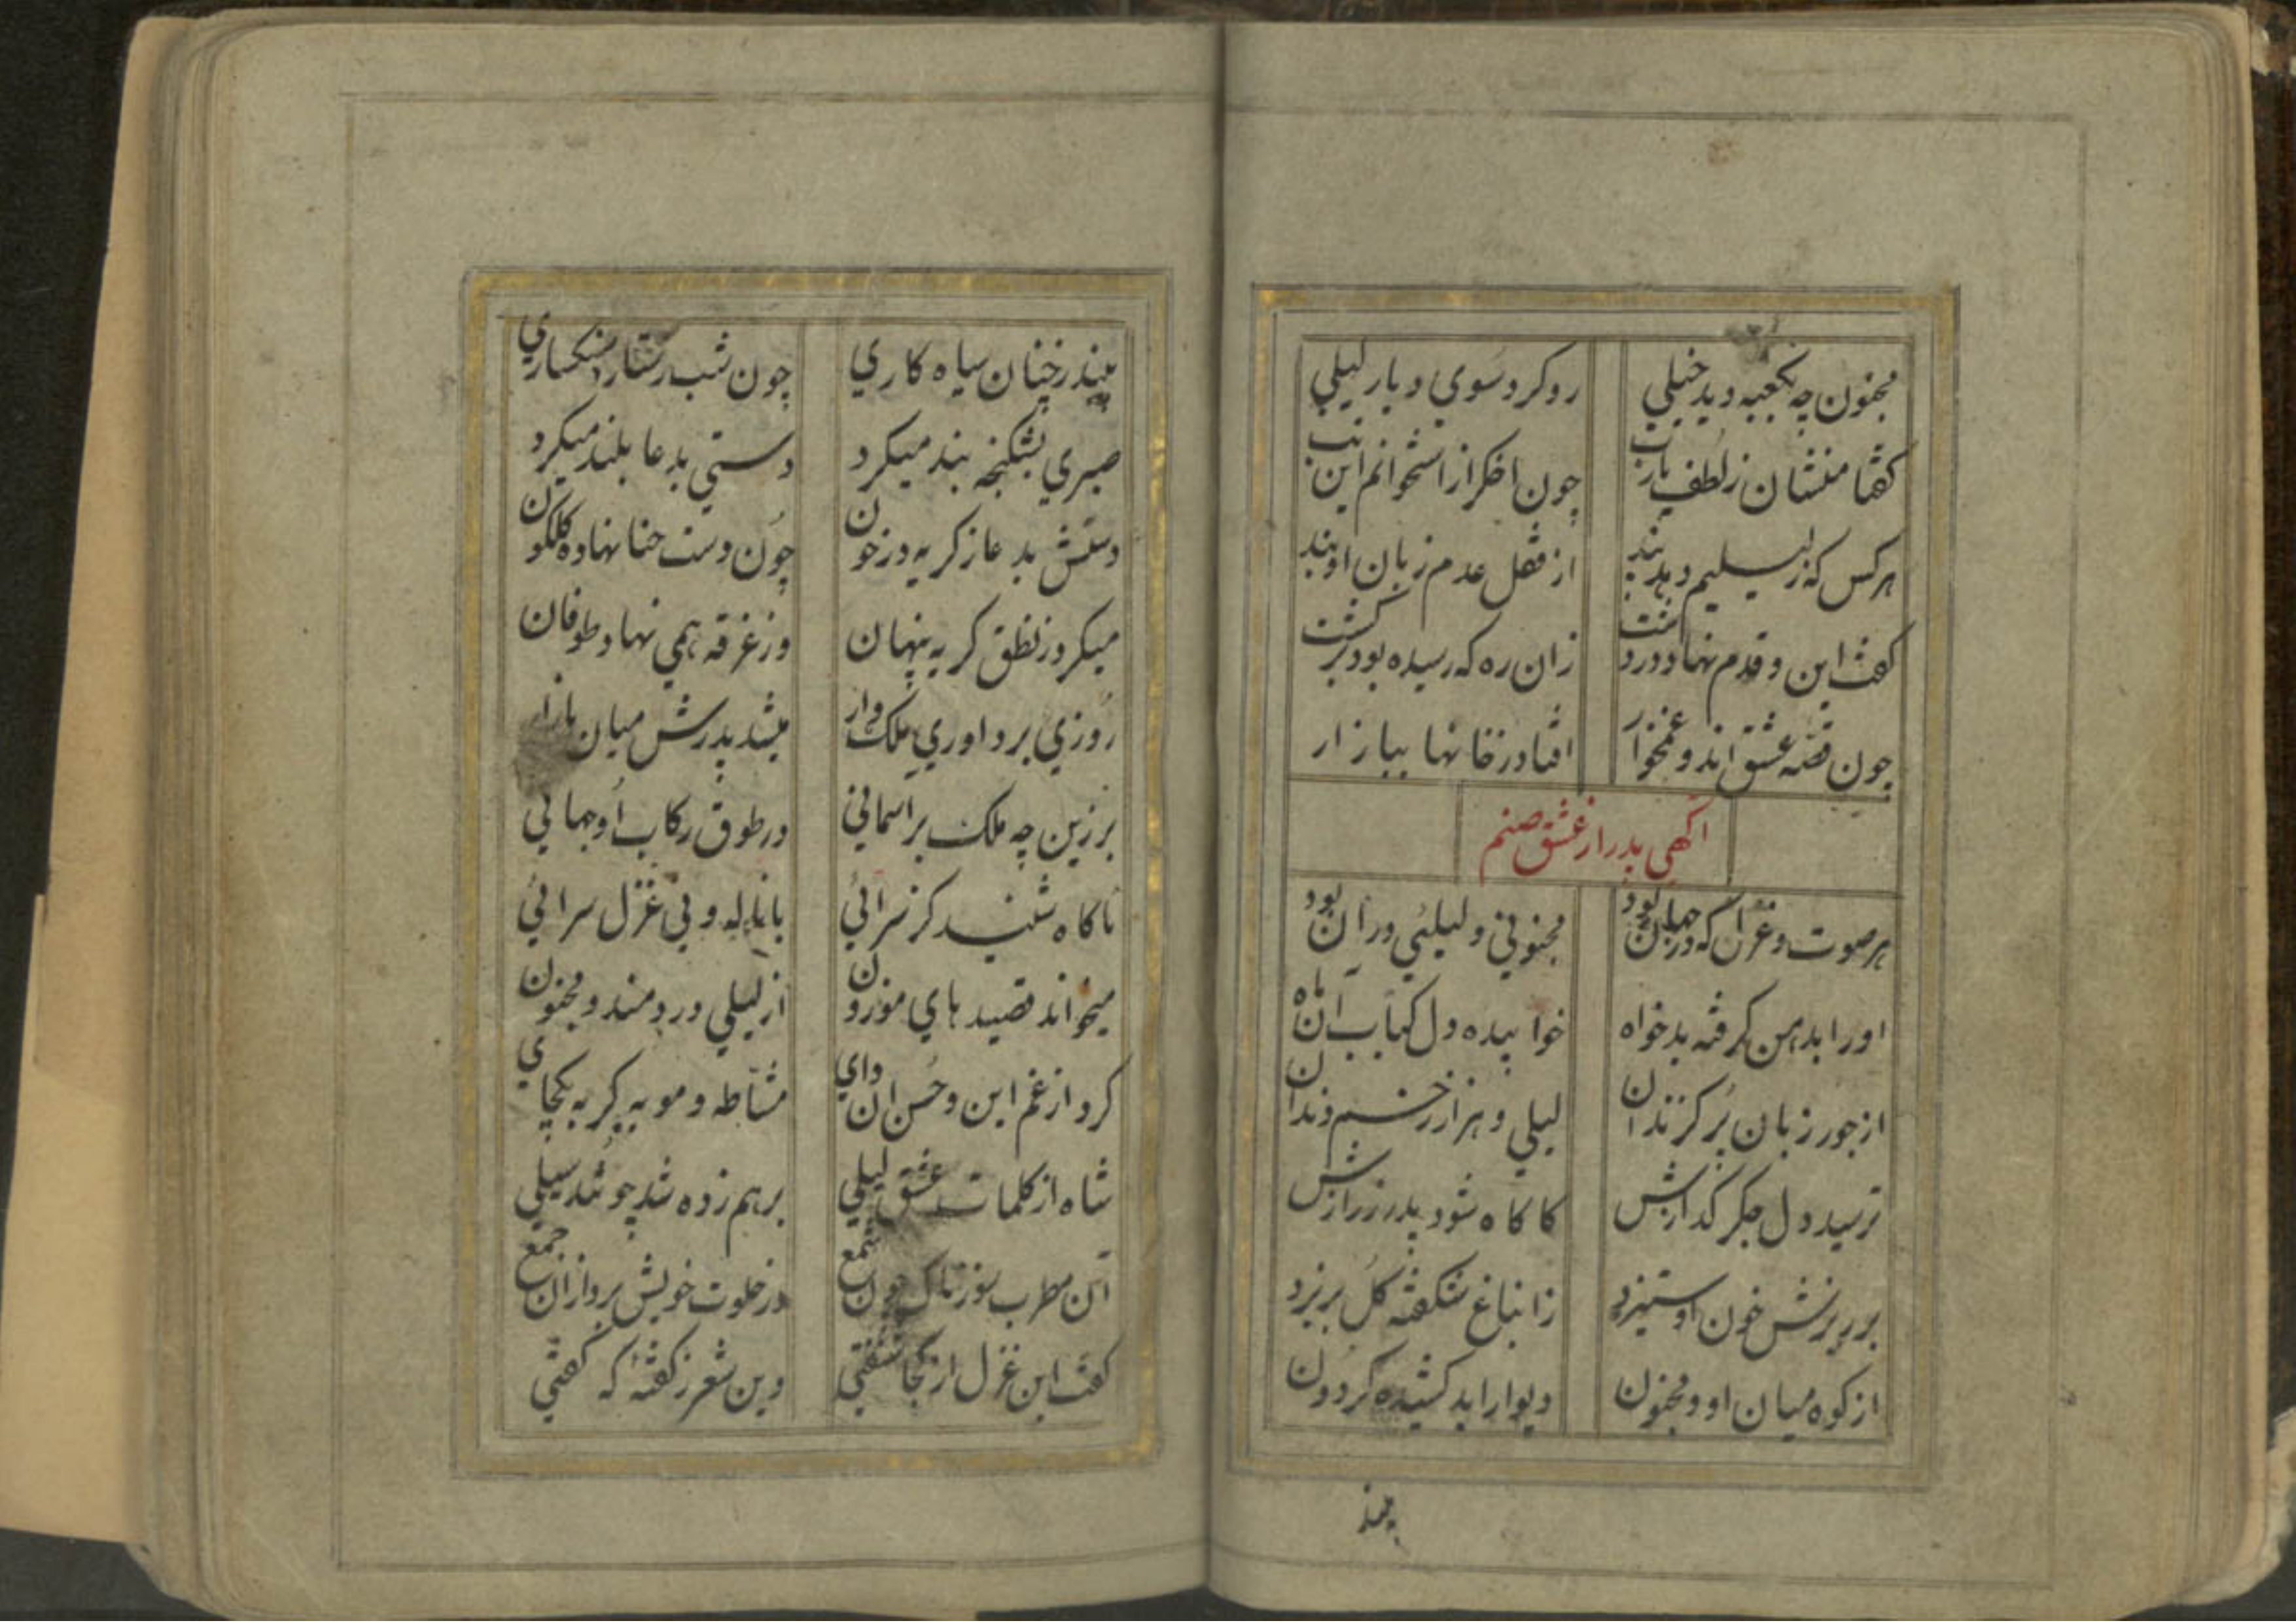 مجنون چه بکعبه دید خیلی روکرد سوی دیار لیلی
کفتا منشان ز لطف یارب چون اخکر از استخوانم این تب
هرکس که ز لیلیم دهد پند از قفل عدم زبان او بند
کفت این و قدم نهاد در دشت زان ره که رسیده بود برکشت
چون قصه عشق اند و غمخوار افتاد ز خانها ببازار
اکهی پدر از عشق صنم
هر صوت و غزل که در جهان بود مجنونی و لیلیی در آن بود
اورا بدهن کرفته بدخواه خوابیده دل کباب آن ماه
از جور زبان پر کزندان لیلی و هزار زخم دندان
ترسید دل جکر کدازش کاکاه شود پدر ز رازش
بر ریزش خون او ستیزد زانباغ شکفته کل بریزد
از کوه میان او و مجنون دیوار ابد کشیده کردون
بیند
بیند ز چنان سیاه کاری چون شب رستار سنکساری
صبری بشکنجه بند میکرد دستی بدعا بلند میکرد
دستش بدعا ز کریه در خون چون دست حنا نهاده کلکون
میکرد ز نطق کریه پنهان وز غرقه همی نهاد طوفان
روزی بر داوری ملک وار میشد پدرش میان بازار
بر زین چه ملک بر اسمانی در طوق رکاب او جهانی
ناکاه شنید کز سرائی با نالهٔ و نی غزل سرائی
میخواند قصیدهای موزون از لیلی دردمند و مجنون
کرد از غم این و حسن ان وای مشاطه و مویه کر به یکجای
شاه از کلمات عشق لیلی برهم زده شد چو شد سیلی
آن مطرب سوزناک چون شمع در خلوت خویش برد از ان جمع
کفت این غزل از کجا شنفتی وین شعر ز کفته که کفتی